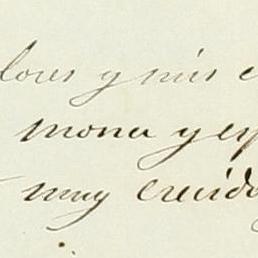 lores y mis
mona y esp
muy crecido